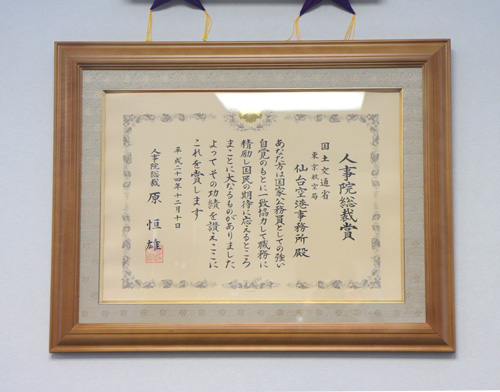 人事院総裁賞
国土交通省
東京航空局
仙台空港事務所殿
あなた方は国家公務員としての強い
自覚のもとに一致協力して職務に
精励し国民の期待に応えるところ
まことに大なるものがありました
よってその功績を讃えここに
これを賞します
平成二十四年十二月十日
人事院総裁 原恒雄